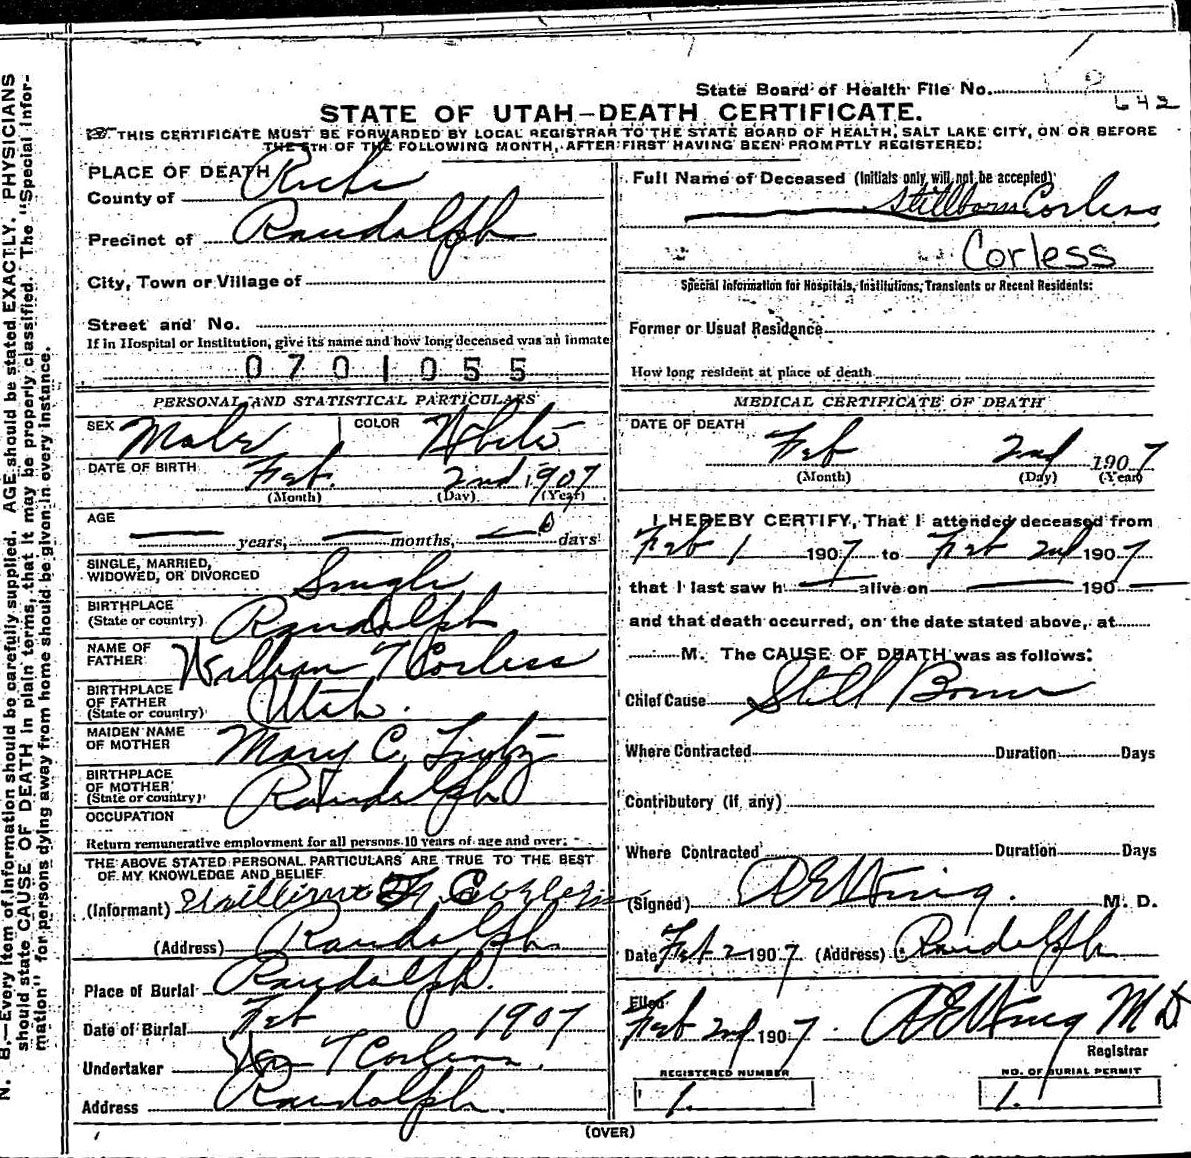 State Board of Health File No.
642
STATE OF UTAH—DEATH CERTIFICATE.
THIS CERTIFICATE MUST BE FORWARDED BY LOCAL REGISTRAR TO THE STATE BOARD OF HEALTH, SALT LAKE CITY, ON OR BEFORE
THE 5TH OF THE FOLLOWING MONTH, AFTER FIRST HAVING BEEN PROMPTLY REGISTERED.
PLACE OF DEATH
County of Rich
Precinct of Randolph
City, Town or Village of
Street and No.
If in Hospital or Institution, give its name and how long deceased was an inmate
0701055
PERSONAL AND STATISTICAL PARTICULARS
SEX Male COLOR White
DATE OF BIRTH Feb. 2nd 1907
(Month) (Day) (Year)
AGE
— years, — months, — 0 days
SINGLE, MARRIED,
WIDOWED, OR DIVORCED Single
BIRTHPLACE
(State or country) Randolph
NAME OF
FATHER William T Corless
BIRTHPLACE
OF FATHER
(State or country) Utah.
MAIDEN NAME
OF MOTHER Mary C.
BIRTHPLACE
OF MOTHER
(State or country) Randolph
OCCUPATION
Return remunerative employment for all persons 10 years of age and over.
THE ABOVE STATED PERSONAL PARTICULARS ARE TRUE TO THE BEST
OF MY KNOWLEDGE AND BELIEF.
(Informant) William T. Corless
(Address) Randolph.
Place of Burial Randolph.
Date of Burial Feb 1907
Undertaker Wm T Corless.
Address Randolph.
Full Name of Deceased (Initials only will not be accepted)
Stillborn Corless
Corless
Special Information for Hospitals, Institutions, Transients or Recent Residents:
Former or Usual Residence
How long resident at place of death
MEDICAL CERTIFICATE OF DEATH
DATE OF DEATH
Feb 2nd 1907
(Month) (Day) (Year)
I HEREBY CERTIFY, That I attended deceased from
Feb 1 1907 to Feb 2nd 1907
that I last saw h — alive on — 190 —
and that death occurred, on the date stated above, at
M. The CAUSE OF DEATH was as follows:
Chief Cause Still Born
Where Contracted Duration Days
Contributory (if any)
Where Contracted Duration Days
(Signed) M. D.
Date Feb 2 1907 (Address) Randolph
Filed
Feb 2nd 1907. M D
Registrar
REGISTERED NUMBER NO. OF BURIAL PERMIT
1. 1.
(OVER)
N. B.—Every item of information should be carefully supplied. AGE should be stated EXACTLY. PHYSICIANS
should state CAUSE OF DEATH in plain terms, that it may be properly classified. The "Special Infor-
mation" for persons dying away from home should be given in every instance.